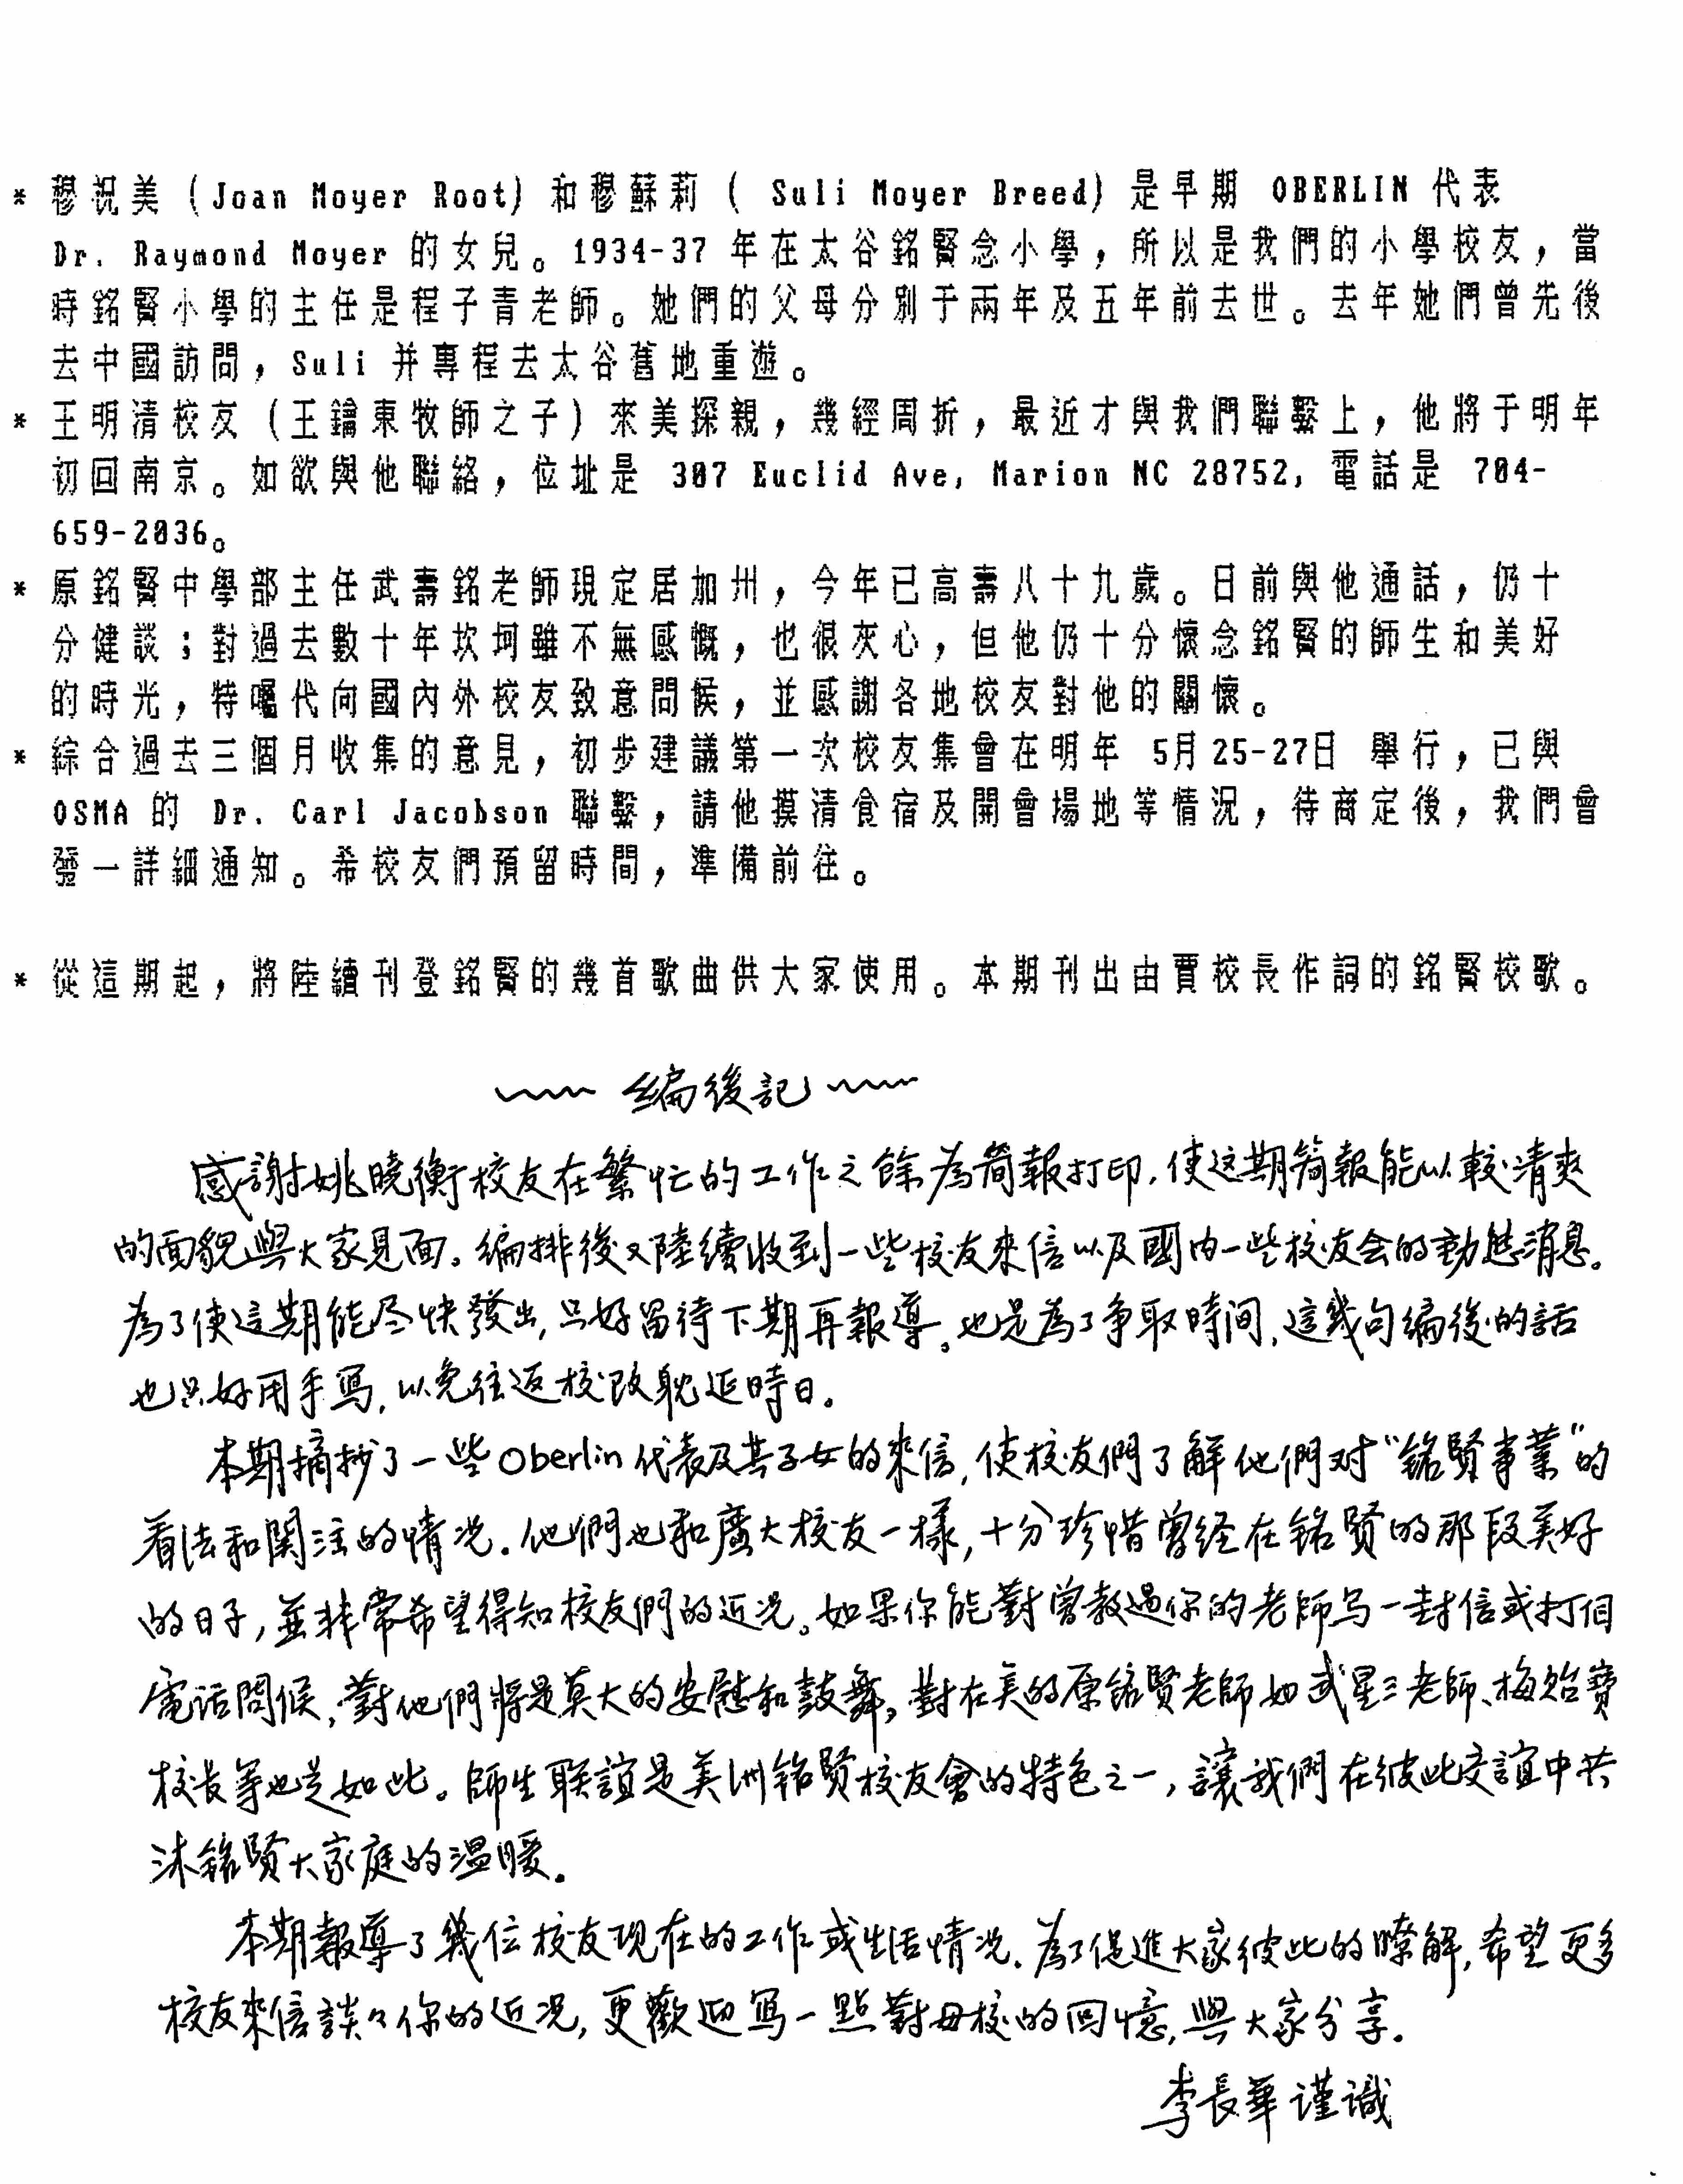 * 穆祝美 (Joan Moyer Root) 和穆蘇莉 ( Suli Moyer Breed) 是早期 OBERLIN 代表
Dr. Raymond Moyer 的女兒。1934-37 年在太谷銘賢念小學，所以是我們的小學校友，當
時銘賢小學的主任是程子青老師。她們的父母分別于兩年及五年前去世。去年她們曾先後
去中國訪問，Suli 并專程去太谷舊地重遊。
* 王明清校友 (王鑰東牧師之子) 來美探親，幾經周折，最近才與我們聯繫上，他將于明年
初回南京。如欲與他聯絡，位址是 307 Euclid Ave, Marion NC 28752, 電話是 704-
659-2036。
* 原銘賢中學部主任武壽銘老師現定居加州，今年已高壽八十九歲。日前與他通話，仍十
分健談；對過去數十年坎坷雖不無感慨，也很灰心，但他仍十分懷念銘賢的師生和美好
的時光，特囑代向國內外校友致意問候，並感謝各地校友對他的關懷。
* 綜合過去三個月收集的意見，初步建議第一次校友集會在明年 5月25-27日 舉行，已與
OSMA 的 Dr. Carl Jacobson 聯繫，請他摸清食宿及開會場地等情況，待商定後，我們會
發一詳細通知。希校友們預留時間，準備前往。
* 從這期起，將陸續刊登銘賢的幾首歌曲供大家使用。本期刊出由賈校長作詞的銘賢校歌。
~~~ 編後記 ~~~
感謝姚曉衡校友在繁忙的工作之餘為簡報打印，使这期簡報能以較清爽
的面貌與大家見面。編排後又陸續收到一些校友來信以及國内一些校友会的動態消息。
為了使這期能尽快發出，只好留待下期再報導。也是為了争取時间，這幾句編後的話
也只好用手寫，以免往返校改耽延時日。
本期摘抄了一些Oberlin代表及其子女的來信，使校友們了解他們对“銘賢事業”的
看法和関注的情况。他們也和廣大校友一樣，十分珍惜曾经在銘賢的那段美好
的日子，並非常希望得知校友們的近况。如果你能對曾教過你的老師写一封信或打個
電话問候，對他們將是莫大的安慰和鼓舞。對在美的原銘賢老師如武星三老師、梅贻寶
校長等也是如此。師生联誼是美洲銘賢校友會的特色之一，讓我們在彼此交誼中共
沐銘賢大家庭的温暖。
本期報導了幾位校友现在的工作或生活情况。為了促進大家彼此的瞭解，希望更多
校友來信談々你的近况，更歡迎寫一點對母校的回憶，與大家分享。
李長華谨識